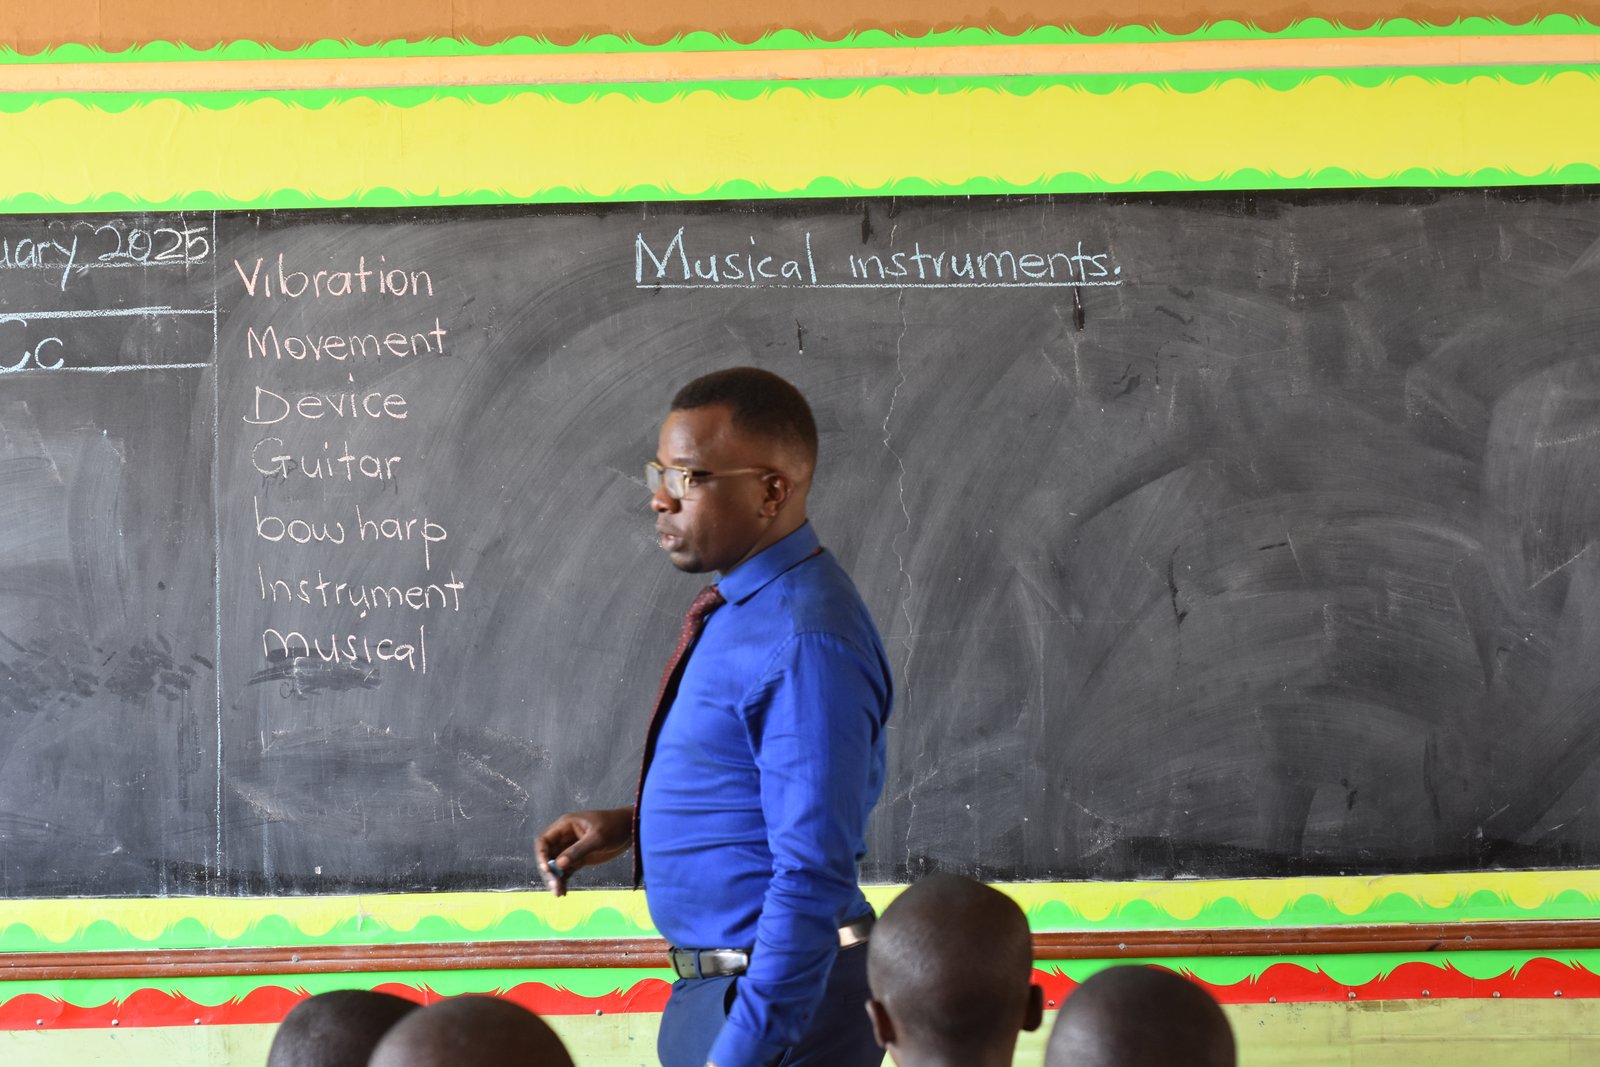 uary, 2025
Cc
Vibration
Movement
Device
Guitar
bow harp
Instrument
musical
Musical instruments.